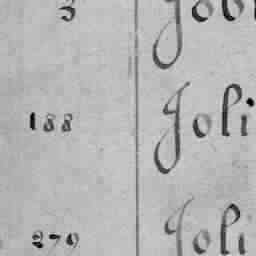 3 Jobi
188 Joli
279 Joli